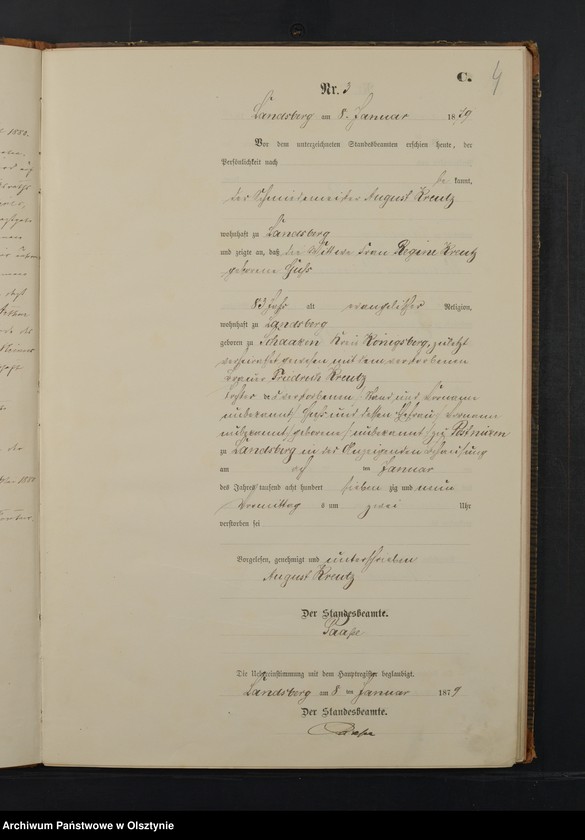 C. 4
Nr. 3
Landsberg am 8. Januar 1879
Vor dem unterzeichneten Standesbeamten erschien heute, der
Persönlichkeit nach
be kannt,
der Schmiedemeister August Kreutz
wohnhaft zu Landsberg
und zeigte an, daß die Wittwe Frau Regine Kreutz
geborne Huhs
83 Jahr alt evangelischer Religion,
wohnhaft zu Landsberg
geboren zu Schaaken Kreis Königsberg, zuletzt
verheirathet gewesen mit dem verstorbenen
Friedrich Kreutz
Tochter des verstorbenen /Stand und Vorname
unbekannt/ Huhs und dessen Ehefrau /Vorname
unbekannt/ geborene /unbekannt/ zu
zu Landsberg in der Anzeigenden Behausung
am acht ten Januar
des Jahres tausend acht hundert sieben zig und neun
Vormittag s um zwei Uhr
verstorben sei
Vorgelesen, genehmigt und unterschrieben
August Kreutz
Der Standesbeamte.
Die Uebereinstimmung mit dem Hauptregister beglaubigt.
Landsberg am 8 ten Januar 1879
Der Standesbeamte.
Archiwum Państwowe w Olsztynie